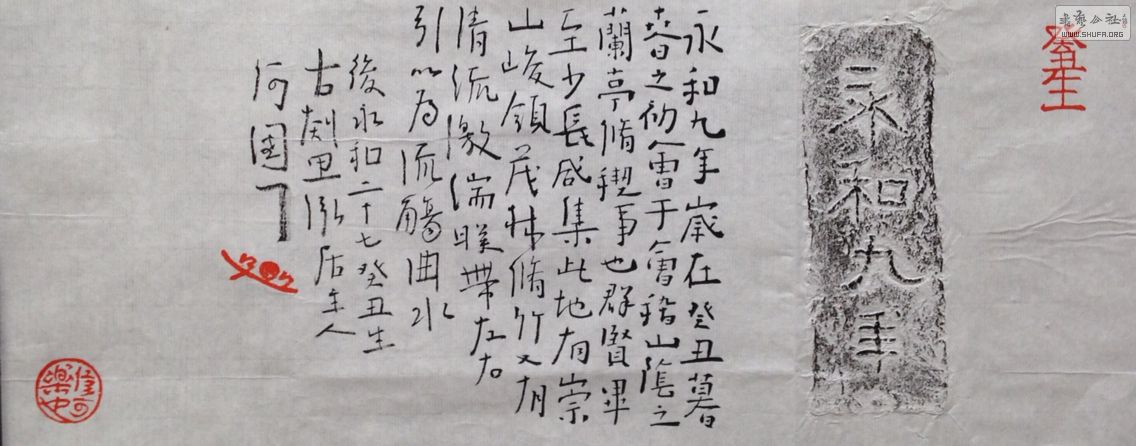 WWW.SHUFA.ORG
癸丑生
永和九年
永和九年歲在癸丑暮
春之初會于會稽山陰之
蘭亭脩禊事也群賢畢
至少長咸集此地有崇
山峻領茂林脩竹又有
清流激湍暎帶左右
引以為流觴曲水
後永和二十七癸丑生
古剡居主人
何國